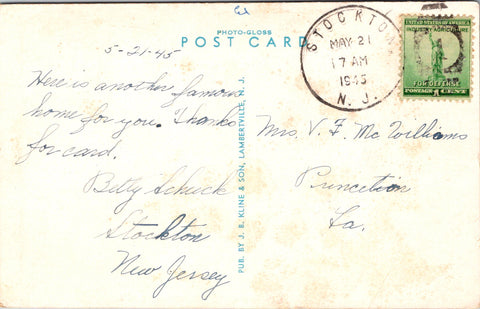 PHOTO-GLOSS
POST CARD
5-21-45
Here is another famous
home for you. Thanks
for card.
Betty Schuck
Stockton
New Jersey
PUB. BY J. B. KLINE & SON, LAMBERTVILLE, N. J.
STOCKTON
MAY 21
17 AM
1945
N. J.
UNITED STATES OF AMERICA
INDUSTRY AGRICULTURE
FOR DEFENSE
POSTAGE 1 CENT
Mrs. V. F. McWilliams
Princeton
Ia.